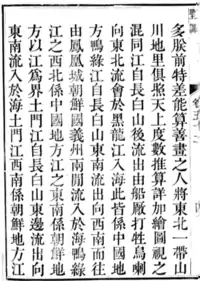 多朕前特差能算善畫之人將東北一帶山
川地里俱照天上度數推算詳加繪圖視之
混同江自長白山後流出由船廠打牲烏喇
向東北流會於黑龍江入海此皆係中國地
方鴨綠江自長白山東南流出向西南而往
由鳳凰城朝鮮國義州兩間流入於海鴨綠
江之西北係中國地方江之東南係朝鮮地
方以江爲界土門江自長白山東邊流出向
東南流入於海土門江西南係朝鮮地方江